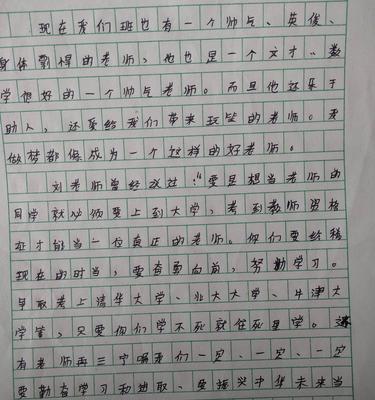 现在我们班也有一个帅气、英俊、
身体剽悍的老师，他也是一个文才、数
学也好的一个帅气老师。而且他还乐于
助人，还爱给我们带来玩的老师。我
做梦都像成为一个这样的好老师。
刘老师曾经说过："要是想当老师的
同学就必须要上到大学，考到教师资格
证才能当一位真正的老师。你们要给我
现在的时当，要奋勇向前，努勤学习。
早取考上清华大学、北大大学、牛津大
学等，只要你们学不死就往死里学。
有老师再三宁嘱我们一定、一定、一定
要勤奋学习和进取、要振兴中华未来当